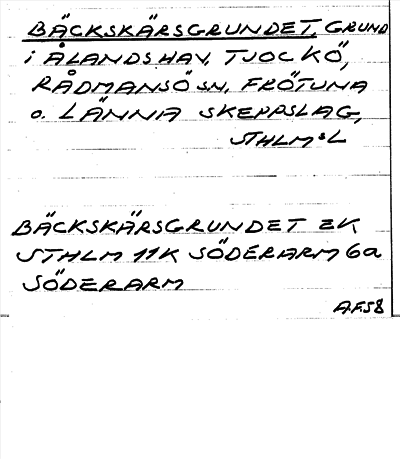 BÄCKSKÄRSGRUNDET, GRUND
i ÅLANDSHAV, TJOCKÖ,
RÅDMANSÖ SN, FRÖTUNA
o. LÄNNA SKEPPSLAG,
STHLMsL
BÄCKSKÄRSGRUNDET EK
STHLM 11K SÖDERARM 6a
SÖDERARM
AFS8